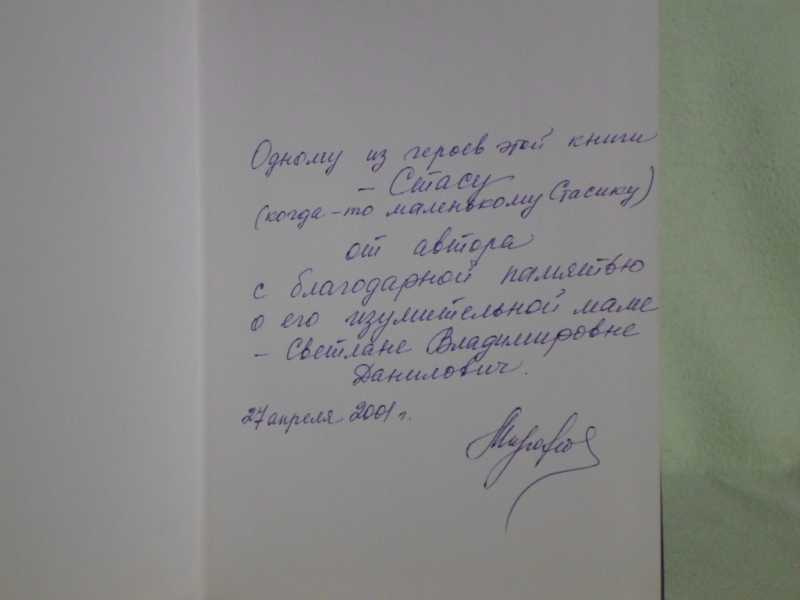 Одному из героев этой книги
– Стасу
(когда-то маленькому Стасику)
от автора
с благодарной памятью
о его изумительной маме
– Светлане Владимировне
Данилович.
27 апреля 2001 г.